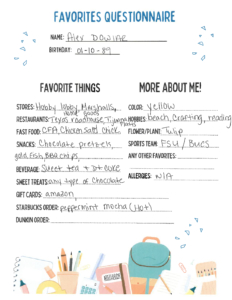 FAVORITES QUESTIONNAIRE
NAME: Alex
BIRTHDAY: 01-10-89
FAVORITE THINGS
STORES: Hobby lobby, Marshalls,
home goods
RESTAURANTS: Texas roadhouse,
FAST FOOD: CFA, Chicken Salad Chick
SNACKS: Chocolate pretzels,
gold fish, BBQ chips,
BEVERAGE: Sweet tea + Dt coke
SWEET TREATS: any type of chocolate
GIFT CARDS: amazon,
STARBUCKS ORDER: peppermint mocha (Hot)
DUNKIN ORDER:
MORE ABOUT ME!
COLOR: Yellow
HOBBIES: beach, Crafting, reading
FLOWER/PLANT: Tulip
SPORTS TEAM: FSU / Bucs
ANY OTHER FAVORITES:
ALLERGIES: N/A